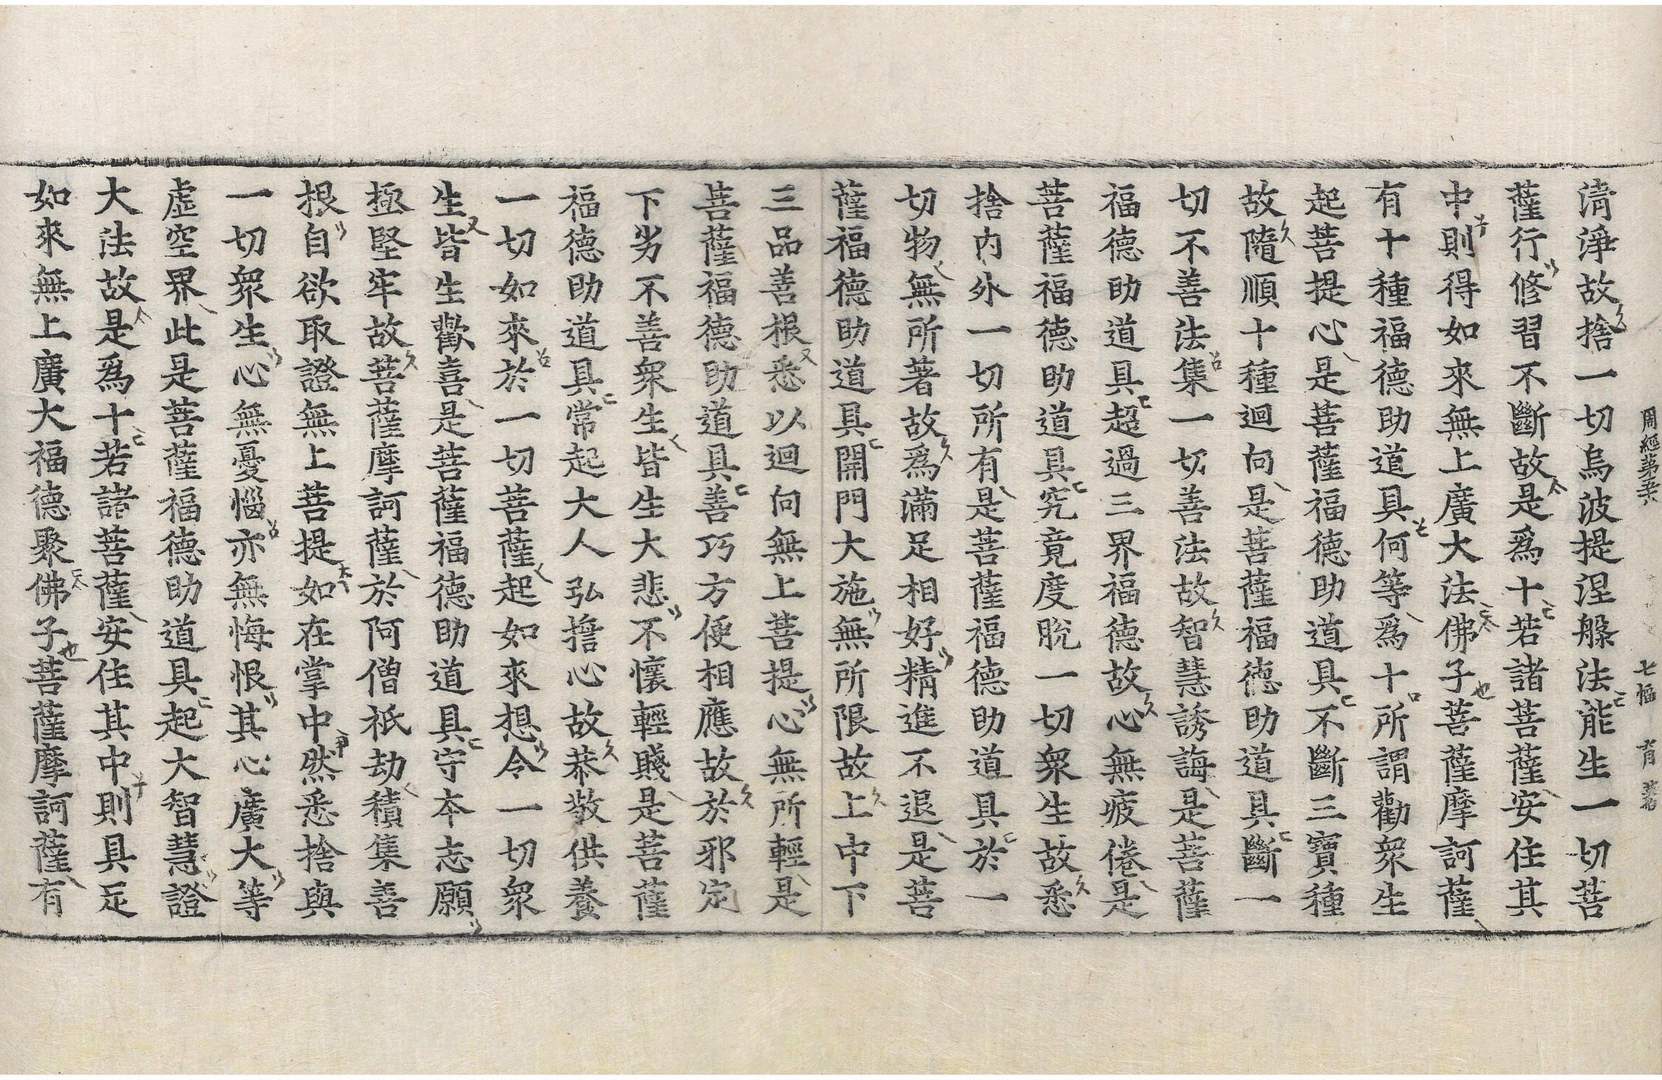 周經第
七幅
清淨故捨一切烏波提涅槃法能生一切菩
薩行修習不斷故是爲十若諸菩薩安住其
中則得如來無上廣大法佛子菩薩摩訶薩
有十種福德助道具何等爲十所謂勸衆生
起菩提心是菩薩福德助道具不斷三寶種
故隨順十種迴向是菩薩福德助道具斷一
切不善法集一切善法故智慧誘誨是菩薩
福德助道具超過三界福德故心無疲倦是
菩薩福德助道具究竟度脫一切衆生故悉
捨內外一切所有是菩薩福德助道具於一
切物無所著故爲滿足相好精進不退是菩
薩福德助道具開門大施無所限故上中下
三品善根悉以迴向無上菩提心無所輕是
菩薩福德助道具善巧方便相應故於邪定
下劣不善衆生皆生大悲不懷輕賤是菩薩
福德助道具常起大人弘擔心故恭敬供養
一切如來於一切菩薩起如來想令一切衆
生皆生歡喜是菩薩福德助道具守本志願
極堅牢故菩薩摩訶薩於阿僧祇劫積集善
根自欲取證無上菩提如在掌中然悉捨與
一切衆生心無憂惱亦無悔恨其心廣大等
虛空界此是菩薩福德助道具起大智慧證
大法故是爲十若諸菩薩安住其中則具足
如來無上廣大福德聚佛子菩薩摩訶薩有